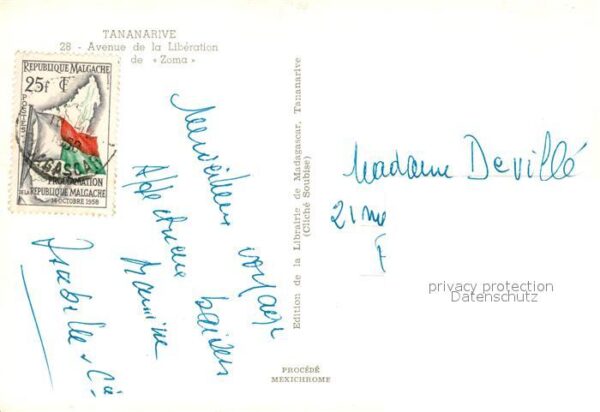 TANANARIVE
28 - Avenue de la Libération
de « Zoma »
REPUBLIQUE MALGACHE
25f
PROCLAMATION
DE LA REPUBLIQUE MALGACHE
14 OCTOBRE 1958
Merveilleux voyage
Affectueux baisers
Isabelle
Edition de la Librairie de Madagascar, Tananarive
(Cliché Soubise)
Madame Deville
21
privacy protection
Datenschutz
PROCÉDÉ
MEXICHROME